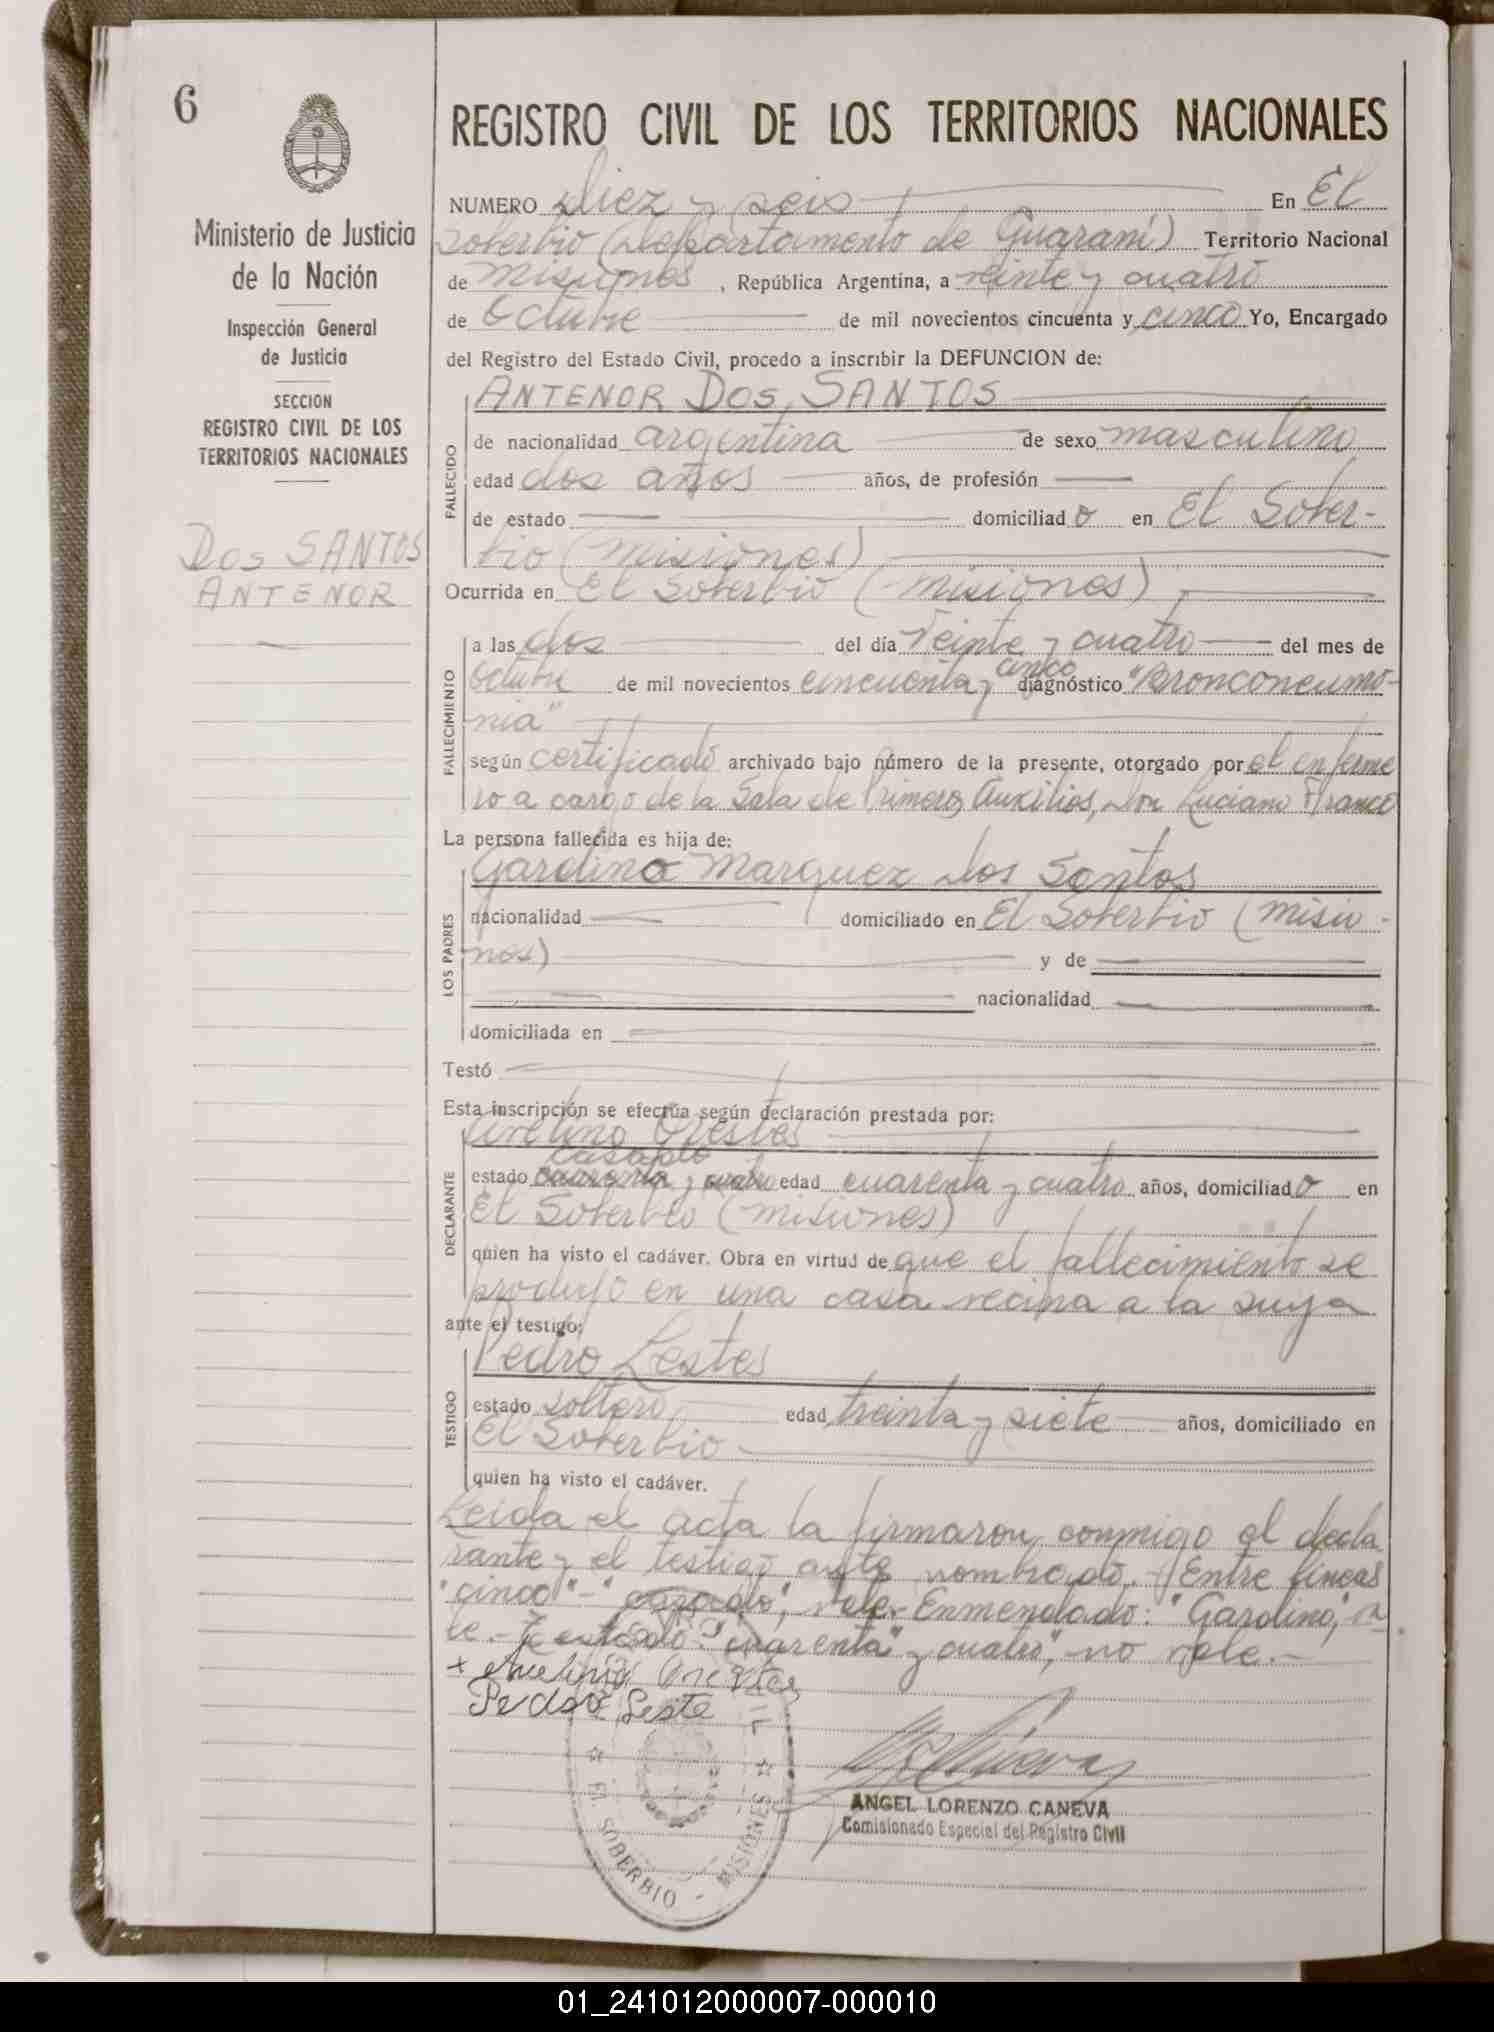 6
Ministerio de Justicia
de la Nación
Inspección General
de Justicia
SECCION
REGISTRO CIVIL DE LOS
TERRITORIOS NACIONALES
Dos SANTOS
ANTENOR
REGISTRO CIVIL DE LOS TERRITORIOS NACIONALES
NUMERO diez y seis En El
Soberbio (Departamento de Guaraní) Territorio Nacional
de Misiones, República Argentina, a veinte y cuatro
de Octubre de mil novecientos cincuenta y cinco Yo, Encargado
del Registro del Estado Civil, procedo a inscribir la DEFUNCION de:
FALLECIDO
ANTENOR DOS SANTOS
de nacionalidad argentina de sexo masculino
edad dos años años, de profesión
de estado domiciliado en El Sober-
bio (Misiones)
Ocurrida en El Soberbio (Misiones)
FALLECIMIENTO
a las dos del día veinte y cuatro del mes de
octubre de mil novecientos cincuenta y cinco diagnóstico "Bronconeumo-
nia"
según certificado archivado bajo número de la presente, otorgado por el enferme
ro a cargo de la Sala de Primeros Auxilios, Don Luciano Franco
La persona fallecida es hija de:
LOS PADRES
Gardino Marquez dos Santos
nacionalidad domiciliado en El Soberbio (Misio-
nes) y de
nacionalidad
domiciliada en
Testó
Esta inscripción se efectúa según declaración prestada por:
DECLARANTE
Avelino Orestes
casado
estado cuarenta y cuatro edad cuarenta y cuatro años, domiciliado en
El Soberbio (Misiones)
quien ha visto el cadáver. Obra en virtud de que el fallecimiento se
produjo en una casa vecina a la suya
ante el testigo:
TESTIGO
Pedro Lestes
estado soltero edad treinta y siete años, domiciliado en
El Soberbio
quien ha visto el cadáver.
Leida el acta la firmaron conmigo el decla
rante y el testigo ante nombrado. Entre lineas
"cinco"-"casado", vale. Enmendado: "Gardino", va
le.- Testado: "cuarenta y cuatro", no vale.-
+ Avelino Orestes
Pedro Leste
EL SOBERBIO - MISIONES
ANGEL LORENZO CANEVA
Comisionado Especial del Registro Civil
01_241012000007-000010